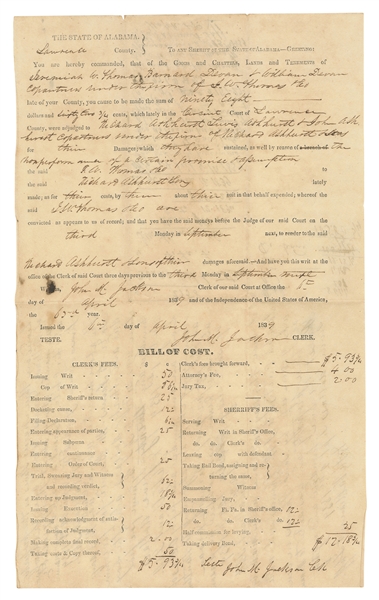 THE STATE OF ALABAMA.
Lawrence County. TO ANY SHERIFF OF THE STATE OF ALABAMA—GREETING:
YOU ARE hereby commanded, that of the GOODS and CHATTELS, LANDS and TENEMENTS of
Jeremiah W. Thomas Barnard Devan & William Devan
Copartners under the firm of J. W. Thomas &co
late of your County, you cause to be made the sum of Ninety Eight
dollars and sixty two cents, which lately in the Circuit Court of Lawrence
County, were adjudged to Richard Ashhurst Lewis Ashhurst & John Ash
hurst Copartners under the firm of Richard Ashhurst & Sons
for their Damages which they have sustained, as well by reason of the
nonperformance of a certain promise & assumption
the said J. W. Thomas &co
the said Richard Ashhurst & Sons lately
made; as for their costs, by them about their suit in that behalf expended; whereof the
said J. W. Thomas &co are
convicted as appears to us of record; and that you have the said moneys before the Judge of our said Court on the
third Monday in September next, to render to the said
Richard Ashhurst & Sons their damages aforesaid—And have you this writ at the
office of the Clerk of said Court three days previous to the third Monday in September next
John M. Jackson Clerk of our said Court at Office the 6th
day of April 1839 and of the Independence of the United States of America,
the 63rd year.
Issued the 6th day of April 1839
TESTE. John M. Jackson CLERK.
BILL OF COST.
CLERK'S FEES. $
Issuing Writ 50
Cop of Writ
Entering Sheriff's return 25
Docketing cause, 12
Filing Declaration,
Entering appearance of parties, 25
Issuing Subpœna
Entering continuance
Entering Order of Court, 25
Trial, Swearing Jury and Witness
and recording verdict,
Entering up Judgment,
Issuing Execution 50
Recording acknowledgment of satis-
faction of Judgment, 12
Making complete final record,
Taking costs & Copy thereof, 50
$5.93¾
Clerk's fees brought forward, $5.93¾
Attorney's Fee, 4.00
Jury Tax, 2.00
SHERRIFF'S FEES.
Serving Writ
Returning Writ in Sheriff's Office,
do. do. Clerk's do.
Leaving cop with defendant
Taking Bail Bond, assigning and re-
turning the same,
Summoning Witness
Empannelling Jury.
Returning Fi. Fa. in Sheriff's office, 12½
do. do. Clerk's do. 12½ 25
Half commission for levying,
Taking delivery Bond, $12.18¾
Teste John M Jackson Clk